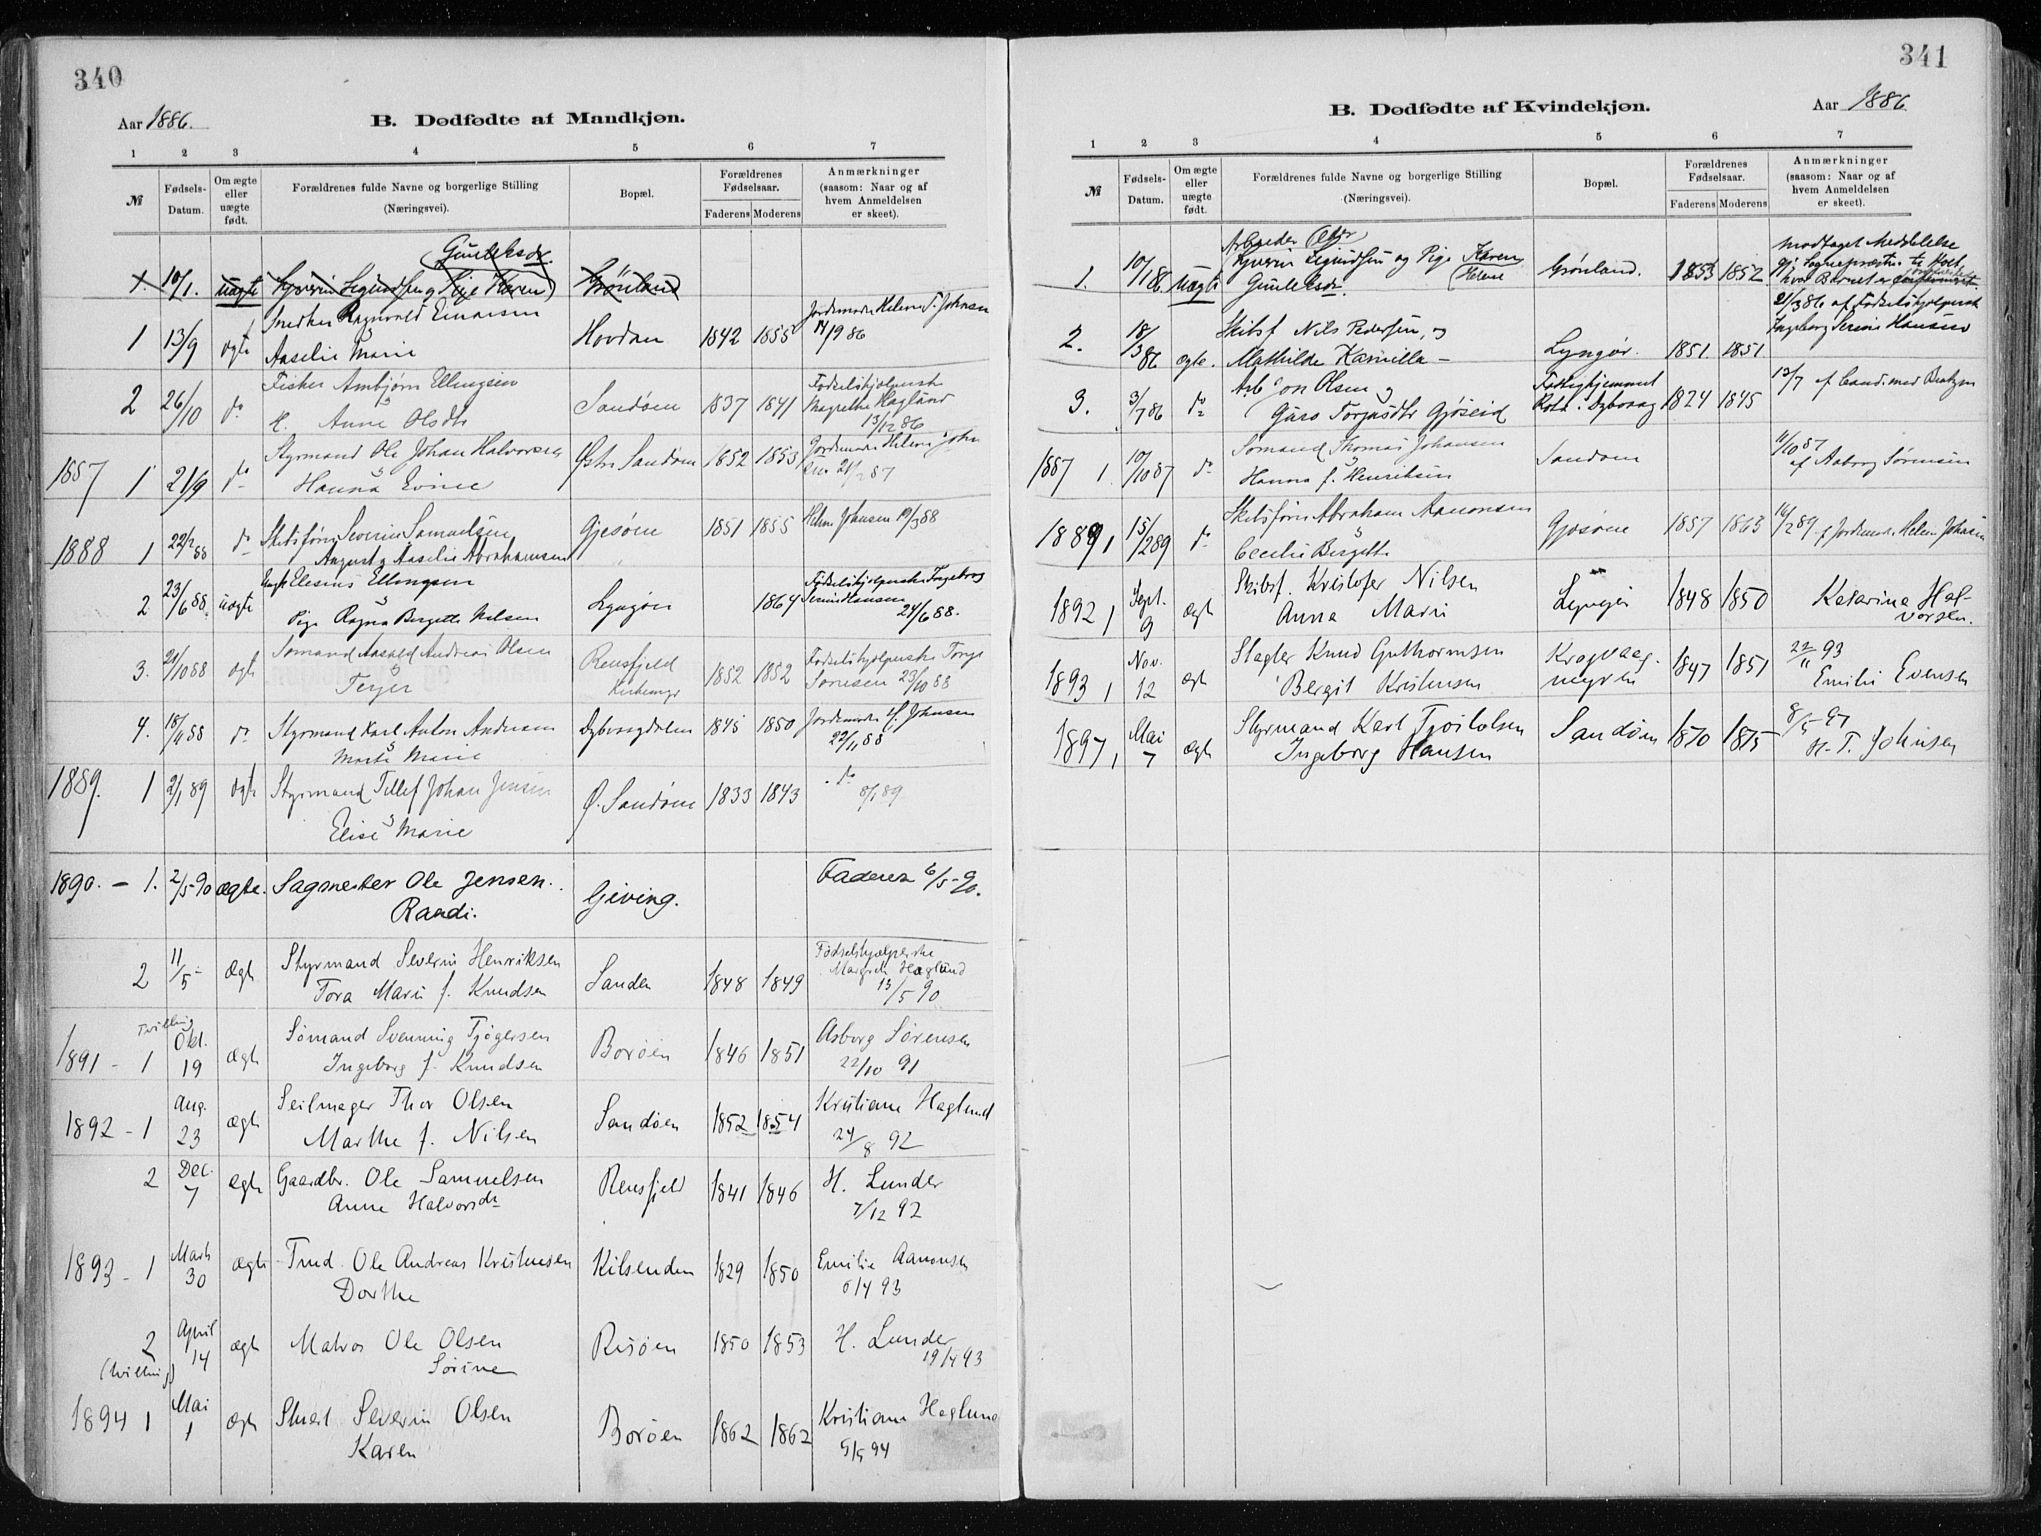 340
Aar 1886.
B. Dødfødte af Mandkjøn.
1 2 3 4 5 6 7
№ Fødsels-Datum. Om ægte eller uægte født. Forældrenes fulde Navne og borgerlige Stilling (Næringsvei). Bopæl. Forældrenes Fødselsaar. Faderens Moderens Anmærkninger (saasom: Naar og af hvem Anmeldelsen er skeet).
Gunleksdr.
10/1. uægte Sigurdsen og Pige Karen Grønland
Snedker Ragnvald Einarsen Jordemoder Helene T. Johnsen
1 13/9 ægte Aaselie Marie Hovdan 1842 1855 14/9 86
Fisker Ambjørn Ellingsen Fødselshjelperske
2 26/10 do Sandøen 1837 1841 Magrethe Haglund
H. Anne Olsdtr 13/12 86
Styrmand Ole Johan Halvorsen Jordemoder Helene John
1887 1 21/9 do Hanna Evine Østre Sandøen 1852 1853 sen 21/2 87
Skibsfører Severin Samuelsen Helene Johnsen 19/3 88
1888 1 22/2 88 do August og Aaselie Abrahamsen Gjesøen 1851 1855
Ungk Elesius Ellingsen Fødselshjelperske Ingeborg
2 23/6 88. uægte Lyngør 1864 Serine Hansen
Pige Ragna Bergette Nilsen 24/6 88.
Sømand Aasold Andreas Olsen Fødselshjelperske Tonje
3. 21/10 88 ægte Terjer Rensfjeld Kirkemyr 1852 1852 Sørensen 23/10 88
4. 18/11 88 do Styrmand Karl Anton Andersen Dybvaagdalen 1845 1850 Jordemoder H. Johnsen
Marte Marie 22/11 88
1889. 1 2/1 89 ægte Styrmand Tellef Johan Jensen Ø. Sandøen 1833 1843 do 8/1 89
Elise Marie
1890. – 1. 2/5-90 ægte. Sagmester Ole Jensen. Giving. Faderen 6/5-90.
Raadi.
2 11/5- Ægte Styrmand Severin Henriksen Sanden 1848 1849 Fødselshjælperske Margreth Haglund
Tora Marie f. Knudsen 13/5 90
Tvilling
1891 - 1 Okt. 19 Ægte Sømand Svenning Tjøgersen Borøen 1846 1851 Asborg Sørensen
Ingeborg f. Knudsen 22/10 91
1892 - 1 Aug. 23 Ægte Seilmager Thor Olsen Sandøen 1852 1854 Kristiane Haglund
Marthe f. Nilsen 24/8 92
2 Dec. 7 ægte Gaardbr. Ole Samuelsen Rensfjeld 1841 1846 H. Lunder
Anne Halvorsdr 7/12 92
1893 - 1 Marts 30 ægte Tmd. Ole Andreas Kristensen Kilsenden 1829 1850 Emilie Aanonsen
Dorthe 6/4 93
2 April 14 ægte Matros Ole Olsen Risøen 1850 1853 H. Lunder
(tvilling) Sørine 19/4 93
1894 1 Mai 1 Ægte Stuert Severin Olsen Borøen 1862 1862 Kristiane Haglund
Karen 5/5 94
341
B. Dødfødte af Kvindekjøn.
Aar 1886
1 2 3 4 5 6 7
№ Fødsels-Datum. Om ægte eller uægte født. Forældrenes fulde Navne og borgerlige Stilling (Næringsvei). Bopæl. Forældrenes Fødselsaar. Faderens Moderens Anmærkninger (saasom: Naar og af hvem Anmeldelsen er skeet).
Arbeider modtaget Meddelelse
1. 10/1 86. uægte Sigurdsen og Pige Karen Helene Grønland. 1853 1852 Sognepræsten til Holt,
Gunleksdr. hvor Barnet er
2. 18/3 86 ægte. Skibsf. Nils Pedersen, og 21/3 86 af Fødselshjelpersk
Mathilde Kamilla – Lyngør. 1851 1851 Ingeborg Serine Hansen
3. 3/7 86 do Arb Jon Olsen Fattighjemmet 12/7 af Cand. med
Guro Torjusdtr Gjøseid i Dybvaag 1824 1845
1887 1 10/10 87 do Sømand Thomas Johansen Sandøen 11/10 87
Hanna f. Henriksen af Aaborg Sørensen
1889 1 15/2 89 do Skibsfører Abraham Aanonsen Gjesøene 1857 1863 16/2 89. af Jordemoder Helene Johnsen
Cecilie Bergitte
1892 1 Sept. 9 ægte Skibsf. Kristofer Nilsen Lyngør 1848 1850 Katarina Hal-
Anna Marie vorsen.
1893 1 Nov. 12 ægte Slagter Knud Guthormsen Kragvaag- 1847 1851 22/11 93
Bergit Kristensen myren Emilie Evensen
1897 1 Mai 7 ægte Styrmand Karl Tjøstolsen Sandøen 1870 1875 8/5-97
Ingeborg Hansen H. T. Johnsen